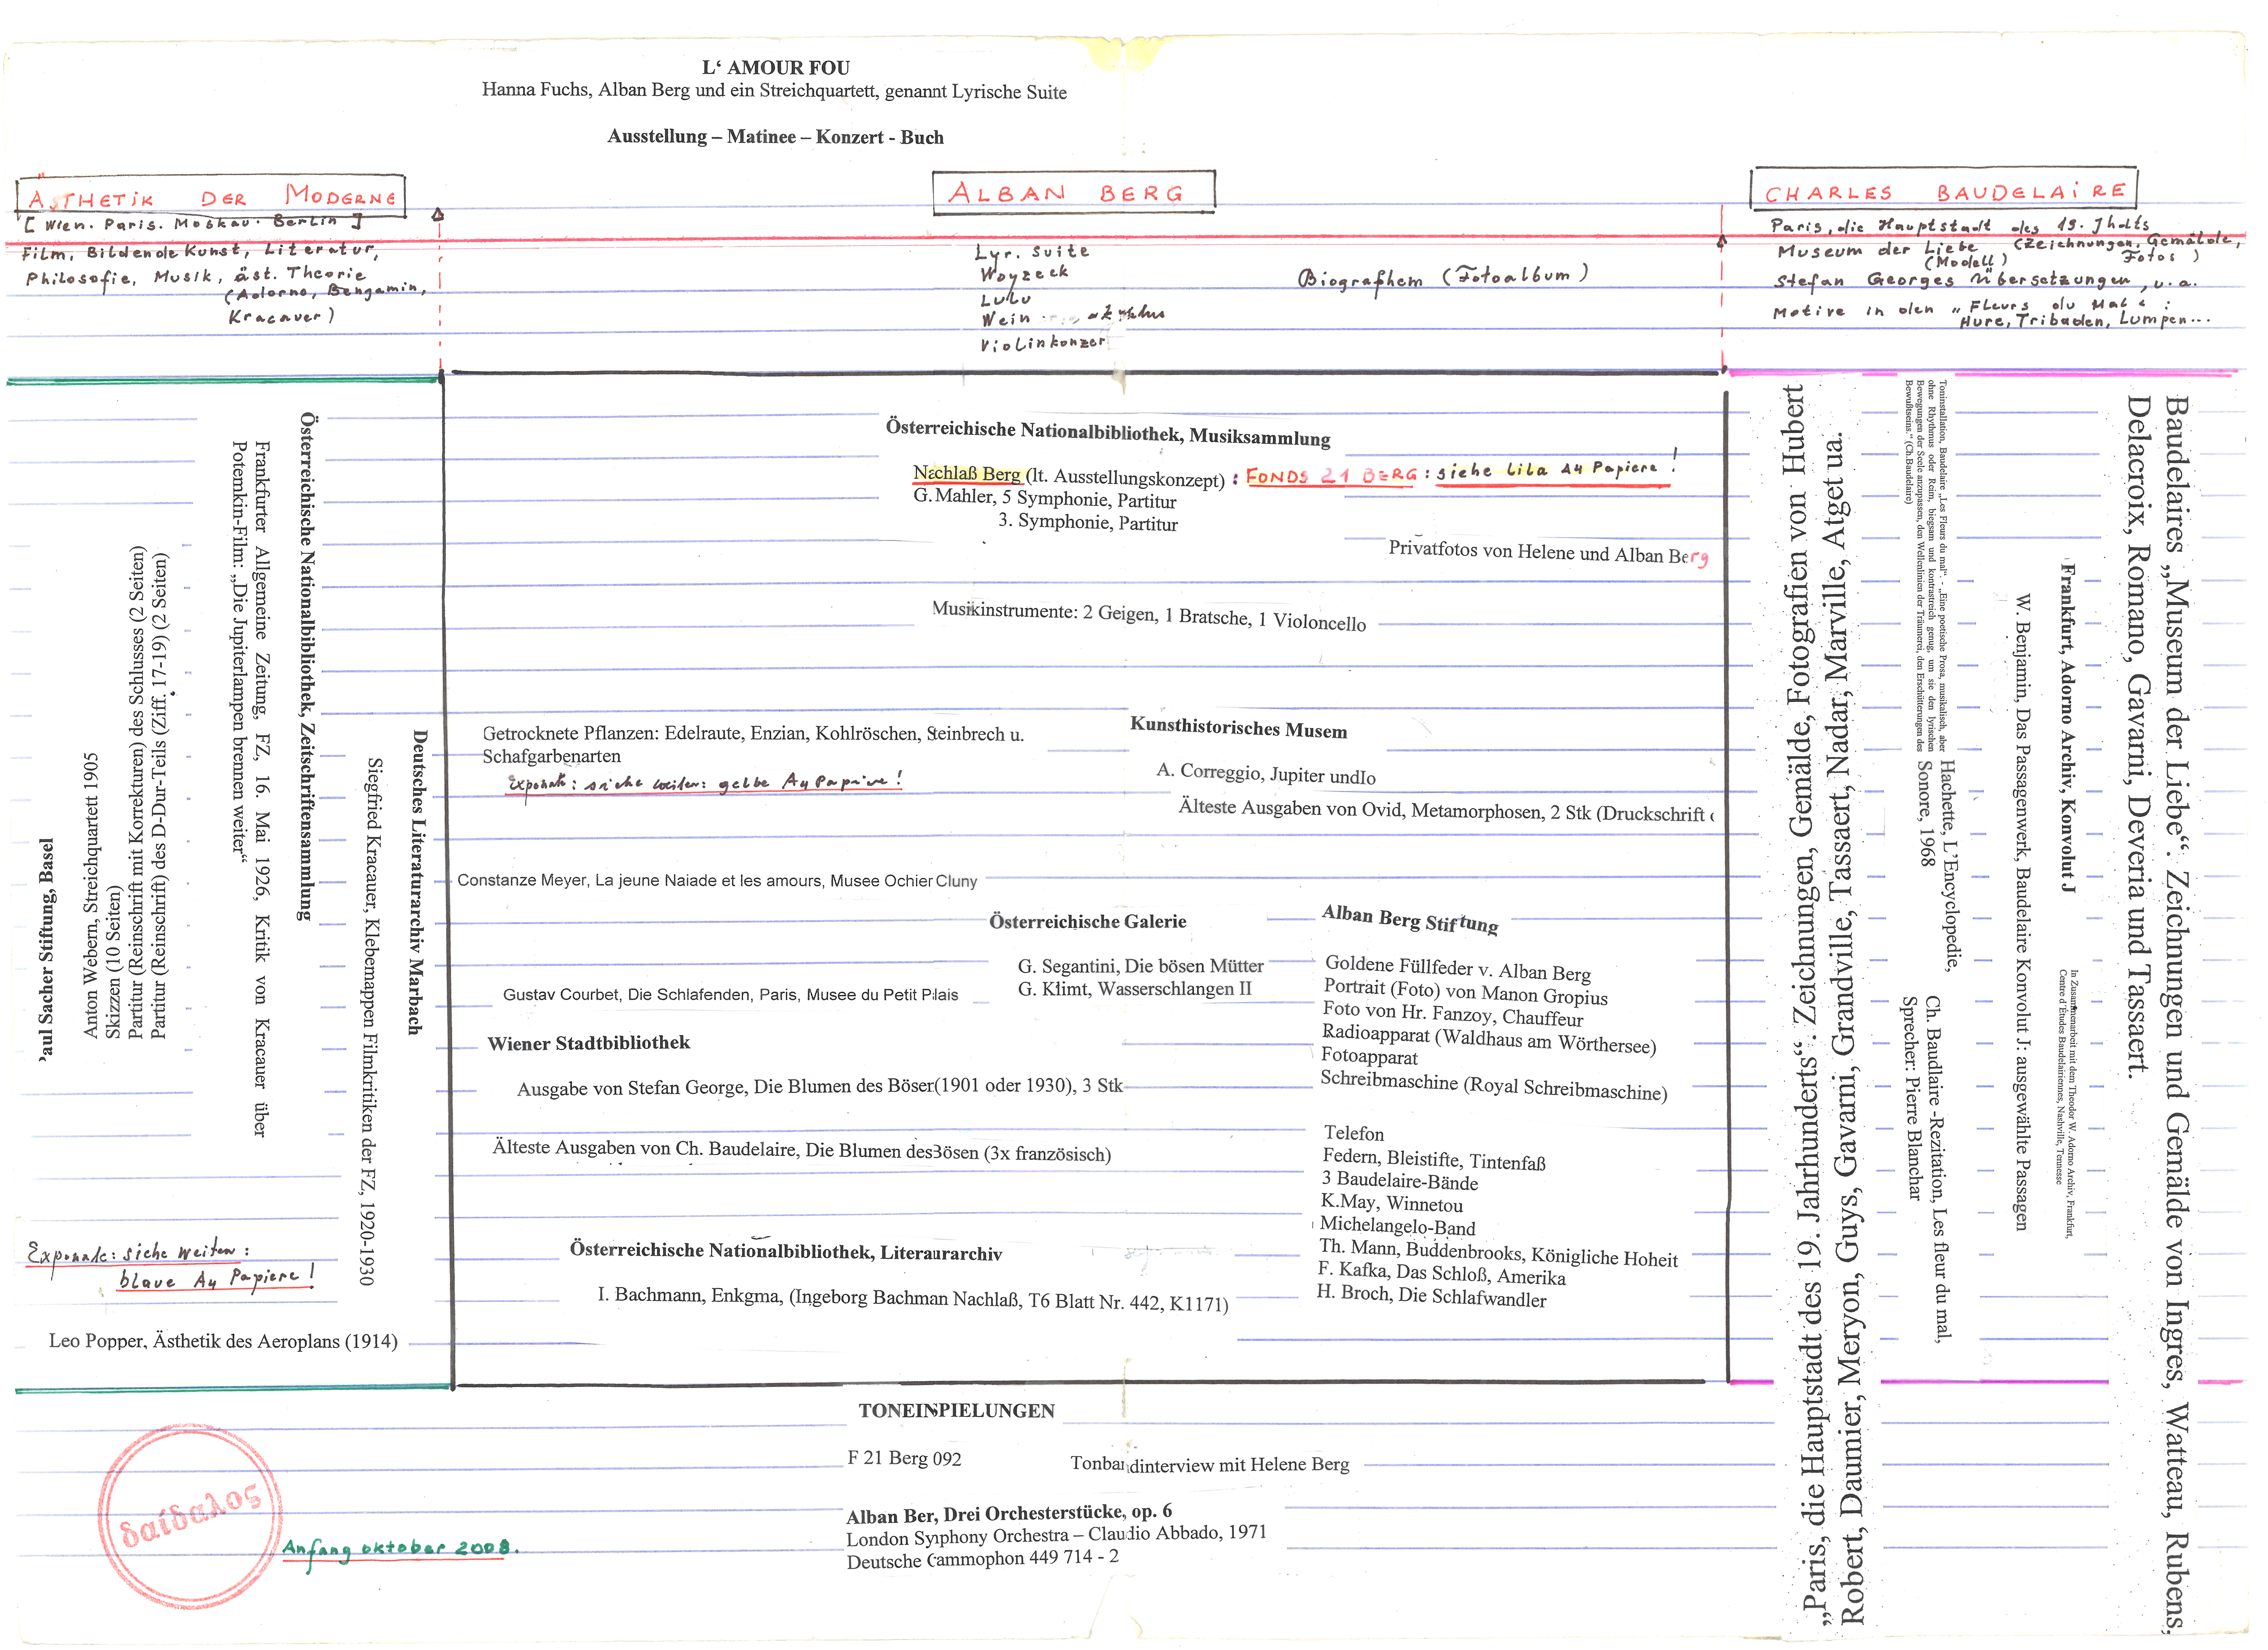 L‘ AMOUR FOU
Hanna Fuchs, Alban Berg und ein Streichquartett, genannt Lyrische Suite
Ausstellung – Matinee – Konzert - Buch
ÄSTHETIK DER MODERNE
[ Wien. Paris. Moskau. Berlin ]
Film, Bildende Kunst, Literatur,
Philosofie, Musik, äst. Theorie
(Adorno, Bengamin,
Kracauer)
ALBAN BERG
Lyr. Suite
Woyzeck
Lulu
Wein
Violinkonzer
Biographem (Fotoalbum)
CHARLES BAUDELAIRE
Paris, die Hauptstadt des 19. Jhdts
Museum der Liebe (Zeichnungen, Gemälde,
(Modell) Fotos)
Stefan Georges Übersetzungen, u. a.
Motive in den „Fleurs du Mal“:
Hure, Tribaden, Lumpen...
Paul Sacher Stiftung, Basel
Anton Webern, Streichquartett 1905
Skizzen (10 Seiten)
Partitur (Reinschrift mit Korrekturen) des Schlusses (2 Seiten)
Partitur (Reinschrift) des D-Dur-Teils (Ziff. 17-19) (2 Seiten)
Österreichische Nationalbibliothek, Zeitschriftensammlung
Frankfurter Allgemeine Zeitung, FZ, 16. Mai 1926, Kritik von Kracauer über
Potemkin-Film: „Die Jupiterlampen brennen weiter“
Deutsches Literaturarchiv Marbach
Siegfried Kracauer, Klebemappen Filmkritiken der FZ, 1920-1930
Exponate: siehe weiter:
blaue A4 Papiere!
Leo Popper, Ästhetik des Aeroplans (1914)
Österreichische Nationalbibliothek, Musiksammlung
Nachlaß Berg (lt. Ausstellungskonzept) : FONDS 21 BERG : siehe lila A4 Papiere !
G. Mahler, 5 Symphonie, Partitur
3. Symphonie, Partitur
Privatfotos von Helene und Alban Berg
Musikinstrumente: 2 Geigen, 1 Bratsche, 1 Violoncello
Getrocknete Pflanzen: Edelraute, Enzian, Kohlröschen, Steinbrech u.
Schafgarbenarten
Exponate: siehe weiter: gelbe A4 Papiere!
Kunsthistorisches Musem
A. Correggio, Jupiter undIo
Älteste Ausgaben von Ovid, Metamorphosen, 2 Stk (Druckschrift
Constanze Meyer, La jeune Naiade et les amours, Musee Ochier Cluny
Österreichische Galerie
G. Segantini, Die bösen Mütter
G. Klimt, Wasserschlangen II
Gustav Courbet, Die Schlafenden, Paris, Musee du Petit Plais
Wiener Stadtbibliothek
Ausgabe von Stefan George, Die Blumen des Böser(1901 oder 1930), 3 Stk
Älteste Ausgaben von Ch. Baudelaire, Die Blumen des Bösen (3x französisch)
Österreichische Nationalbibliothek, Literaurarchiv
I. Bachmann, Enkgma, (Ingeborg Bachman Nachlaß, T6 Blatt Nr. 442, K1171)
Alban Berg Stiftung
Goldene Füllfeder v. Alban Berg
Portrait (Foto) von Manon Gropius
Foto von Hr. Fanzoy, Chauffeur
Radioapparat (Waldhaus am Wörthersee)
Fotoapparat
Schreibmaschine (Royal Schreibmaschine)
Telefon
Federn, Bleistifte, Tintenfaß
3 Baudelaire-Bände
K.May, Winnetou
Michelangelo-Band
Th. Mann, Buddenbrooks, Königliche Hoheit
F. Kafka, Das Schloß, Amerika
H. Broch, Die Schlafwandler
„Paris, die Hauptstadt des 19. Jahrhunderts“. Zeichnungen, Gemälde, Fotografien von Hubert
Robert, Daumier, Meryon, Guys, Gavarni, Grandville, Tassaert, Nadar, Marville, Atget ua.
Toninstallation, Baudelaire „Les Fleurs du mal“. - „Eine poetische Prosa, musikalisch, aber
ohne Rhythmus oder Reim, biegsam und kontrastreich genug, um sie den lyrischen
Bewegungen der Seele anzupassen, den Wellenlinien der Träumerei, den Erschütterungen des
Bewußtseins.“ (Ch.Baudelaire)
Hachette, L’Encyclopedie,
Sonore, 1968
Ch. Baudlaire -Rezitation, Les fleur du mal,
Sprecher: Pierre Blanchar
Frankfurt, Adorno Archiv, Konvolut J
W. Benjamin, Das Passagenwerk, Baudelaire Konvolut J: ausgewählte Passagen
In Zusammenarbeit mit dem Theodor W. Adorno Archiv, Frankfurt,
Centre d’Études Baudelairiennes, Nashville, Tennesse
Baudelaires „Museum der Liebe“. Zeichnungen und Gemälde von Ingres, Watteau, Rubens,
Delacroix, Romano, Gavarni, Deveria und Tassaert.
TONEINSPIELUNGEN
F 21 Berg 092
Tonbandinterview mit Helene Berg
Alban Ber, Drei Orchesterstücke, op. 6
London Symphony Orchestra – Claudio Abbado, 1971
Deutsche Gammophon 449 714 - 2
δαίδαλος
Anfang oktober 2008.